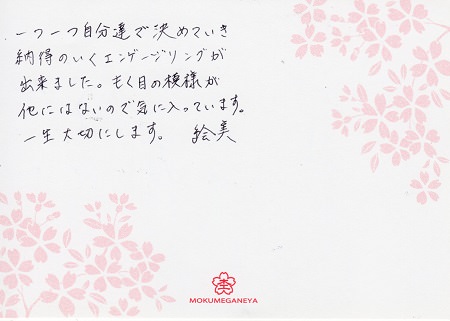 一つ一つ自分達で決めていき
納得のいくエンゲージリングが
出来ました。もく目の模様が
他にはないので気に入っています。
一生大切にします。 絵美
MOKUMEGANEYA